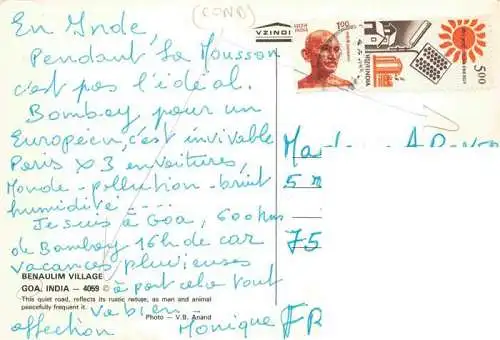 (CONB)
En Inde,
Pendant la Mousson
c'est pas l'idéal.
Bombay pour un
Européen, c'est invivable
Paris x 3 en voitures,
Monde - pollution - bruit
humidité - - - -
Je suis à Goa, 600 kms
de Bombay 16h de car
vacances pluvieuses
à part cela tout
va bien -
affection Monique
VZINDI
भारत INDIA 1.00
भारत INDIA
5.00
5
75
FR
BENAULIM VILLAGE
GOA. INDIA — 4059 ©
This quiet road, reflects its rustic refuge, as man and animal
peacefully frequent it.
Photo — V.B. Anand